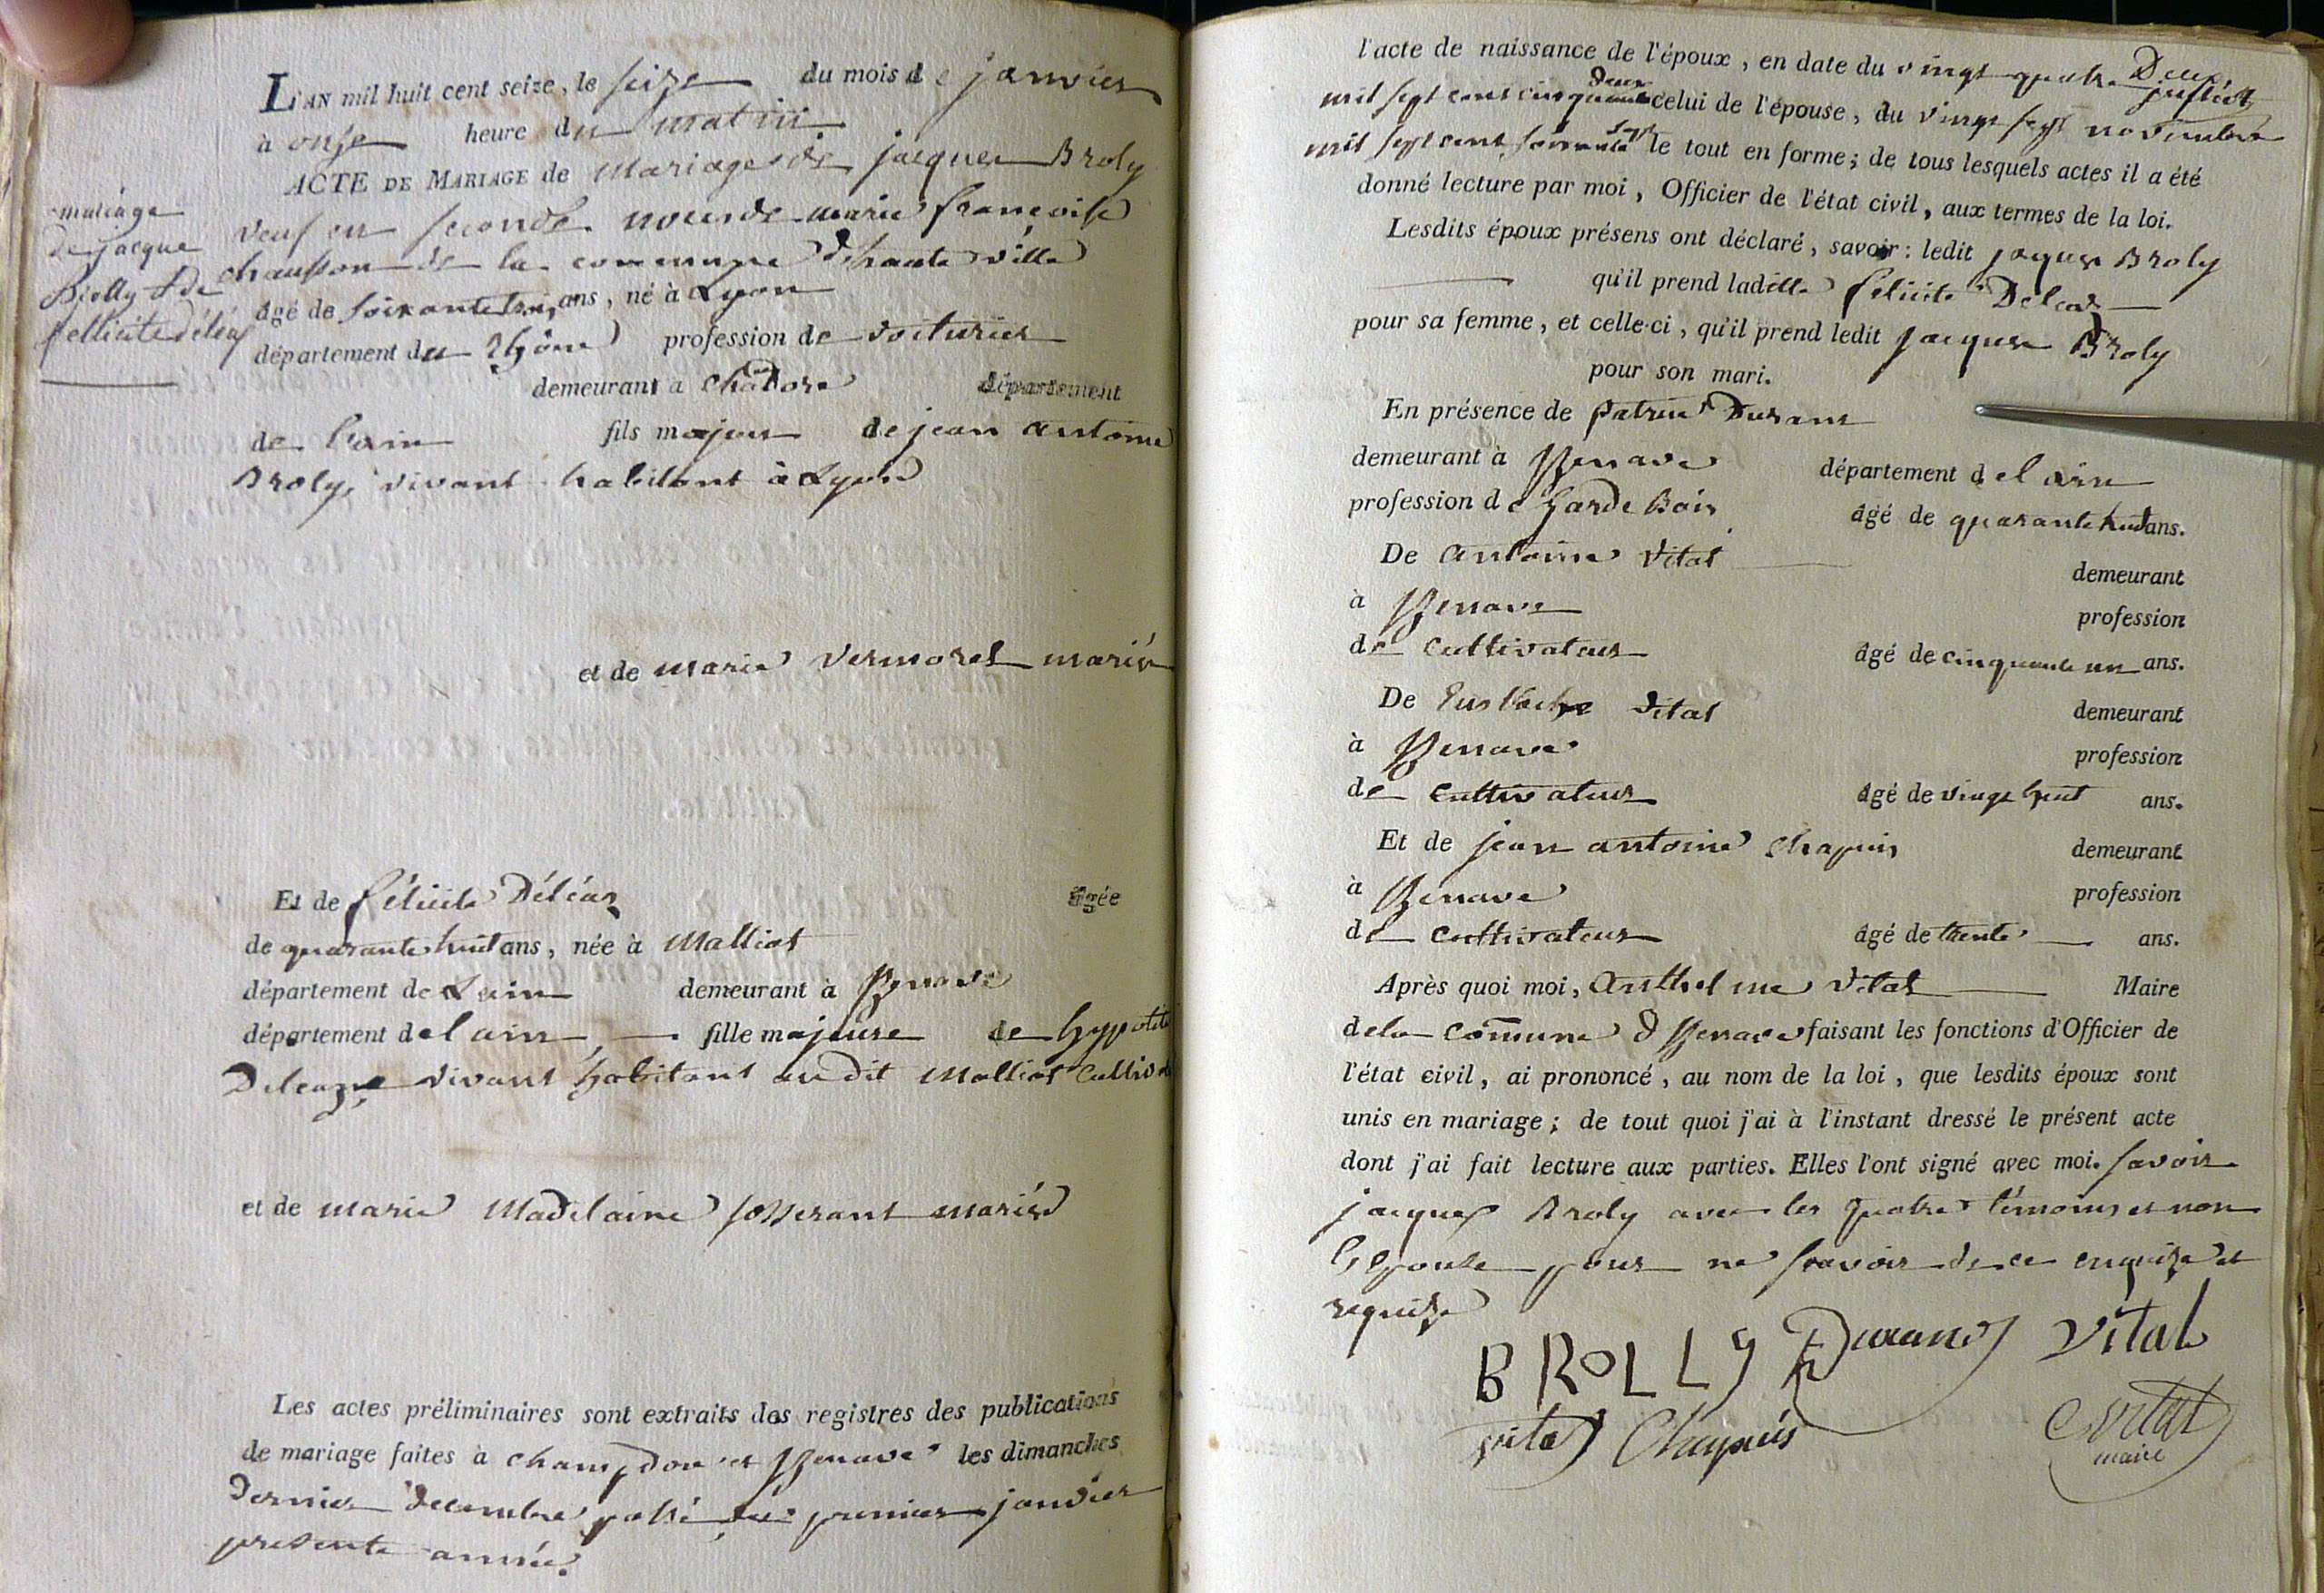 L'AN mil huit cent seize, le seize du mois de janvier
à onze heure du matin
ACTE DE MARIAGE de mariage de jacques Broly
veuf en seconde noces de marie françoise
chausson de la commune d'haute ville
âgé de soixante trois ans, né à Lyon
département du Rhône profession de voiturier
demeurant à département
de l'ain fils majeur de jean antoine
Broly, vivant habitant à Lyon
mariage
de jacque
Brolly & de
fellicite déléaz
et de marie vermorel mariés
Et de félicité Déléaz âgée
de quarante huit ans, née à Malliat
département de Lain demeurant à Izenave
département de l ain fille majeure de hyppolite
Deleaze vivant habitant au dit Malliat
et de marie Madelaine josserant mariés
Les actes préliminaires sont extraits des registres des publications
de mariage faites à champdor et Izenave les dimanches
dernier décembre passé premier janvier
presente année.
l'acte de naissance de l'époux, en date du vingt quatre juillet
mil sept cent cinquante deux celui de l'épouse, du vingt sept novembre
mil sept cent soixante sept le tout en forme; de tous lesquels actes il a été
donné lecture par moi, Officier de l'état civil, aux termes de la loi.
Lesdits époux présens ont déclaré, savoir: ledit jaques Broly
qu'il prend ladille félicité Deleaz
pour sa femme, et celle-ci, qu'il prend ledit jacques Broly
pour son mari.
En présence de patrice Durant
demeurant à Izenave département de l ain
profession de garde Bois âgé de quarante huit ans.
De antoine vital demeurant
à Izenave profession
de cultivateur âgé de cinquante un ans.
De Eustache vital demeurant
à Izenave profession
de cultivateur âgé de vingt huit ans.
Et de jean antoine chapuis demeurant
à Izenave profession
de cultivateur âgé de trente ans.
Après quoi moi, Anthelme vital Maire
de la commune d'Izenave faisant les fonctions d'Officier de
l'état civil, ai prononcé, au nom de la loi, que lesdits époux sont
unis en mariage; de tout quoi j'ai à l'instant dressé le présent acte
dont j'ai fait lecture aux parties. Elles l'ont signé avec moi. savoir
jacques Broly avec les quatre témoins et non
l'epouze pour ne scavoir de ce enquise et
requise
BROLLY Durand vital
vital Chapuis vital
maire